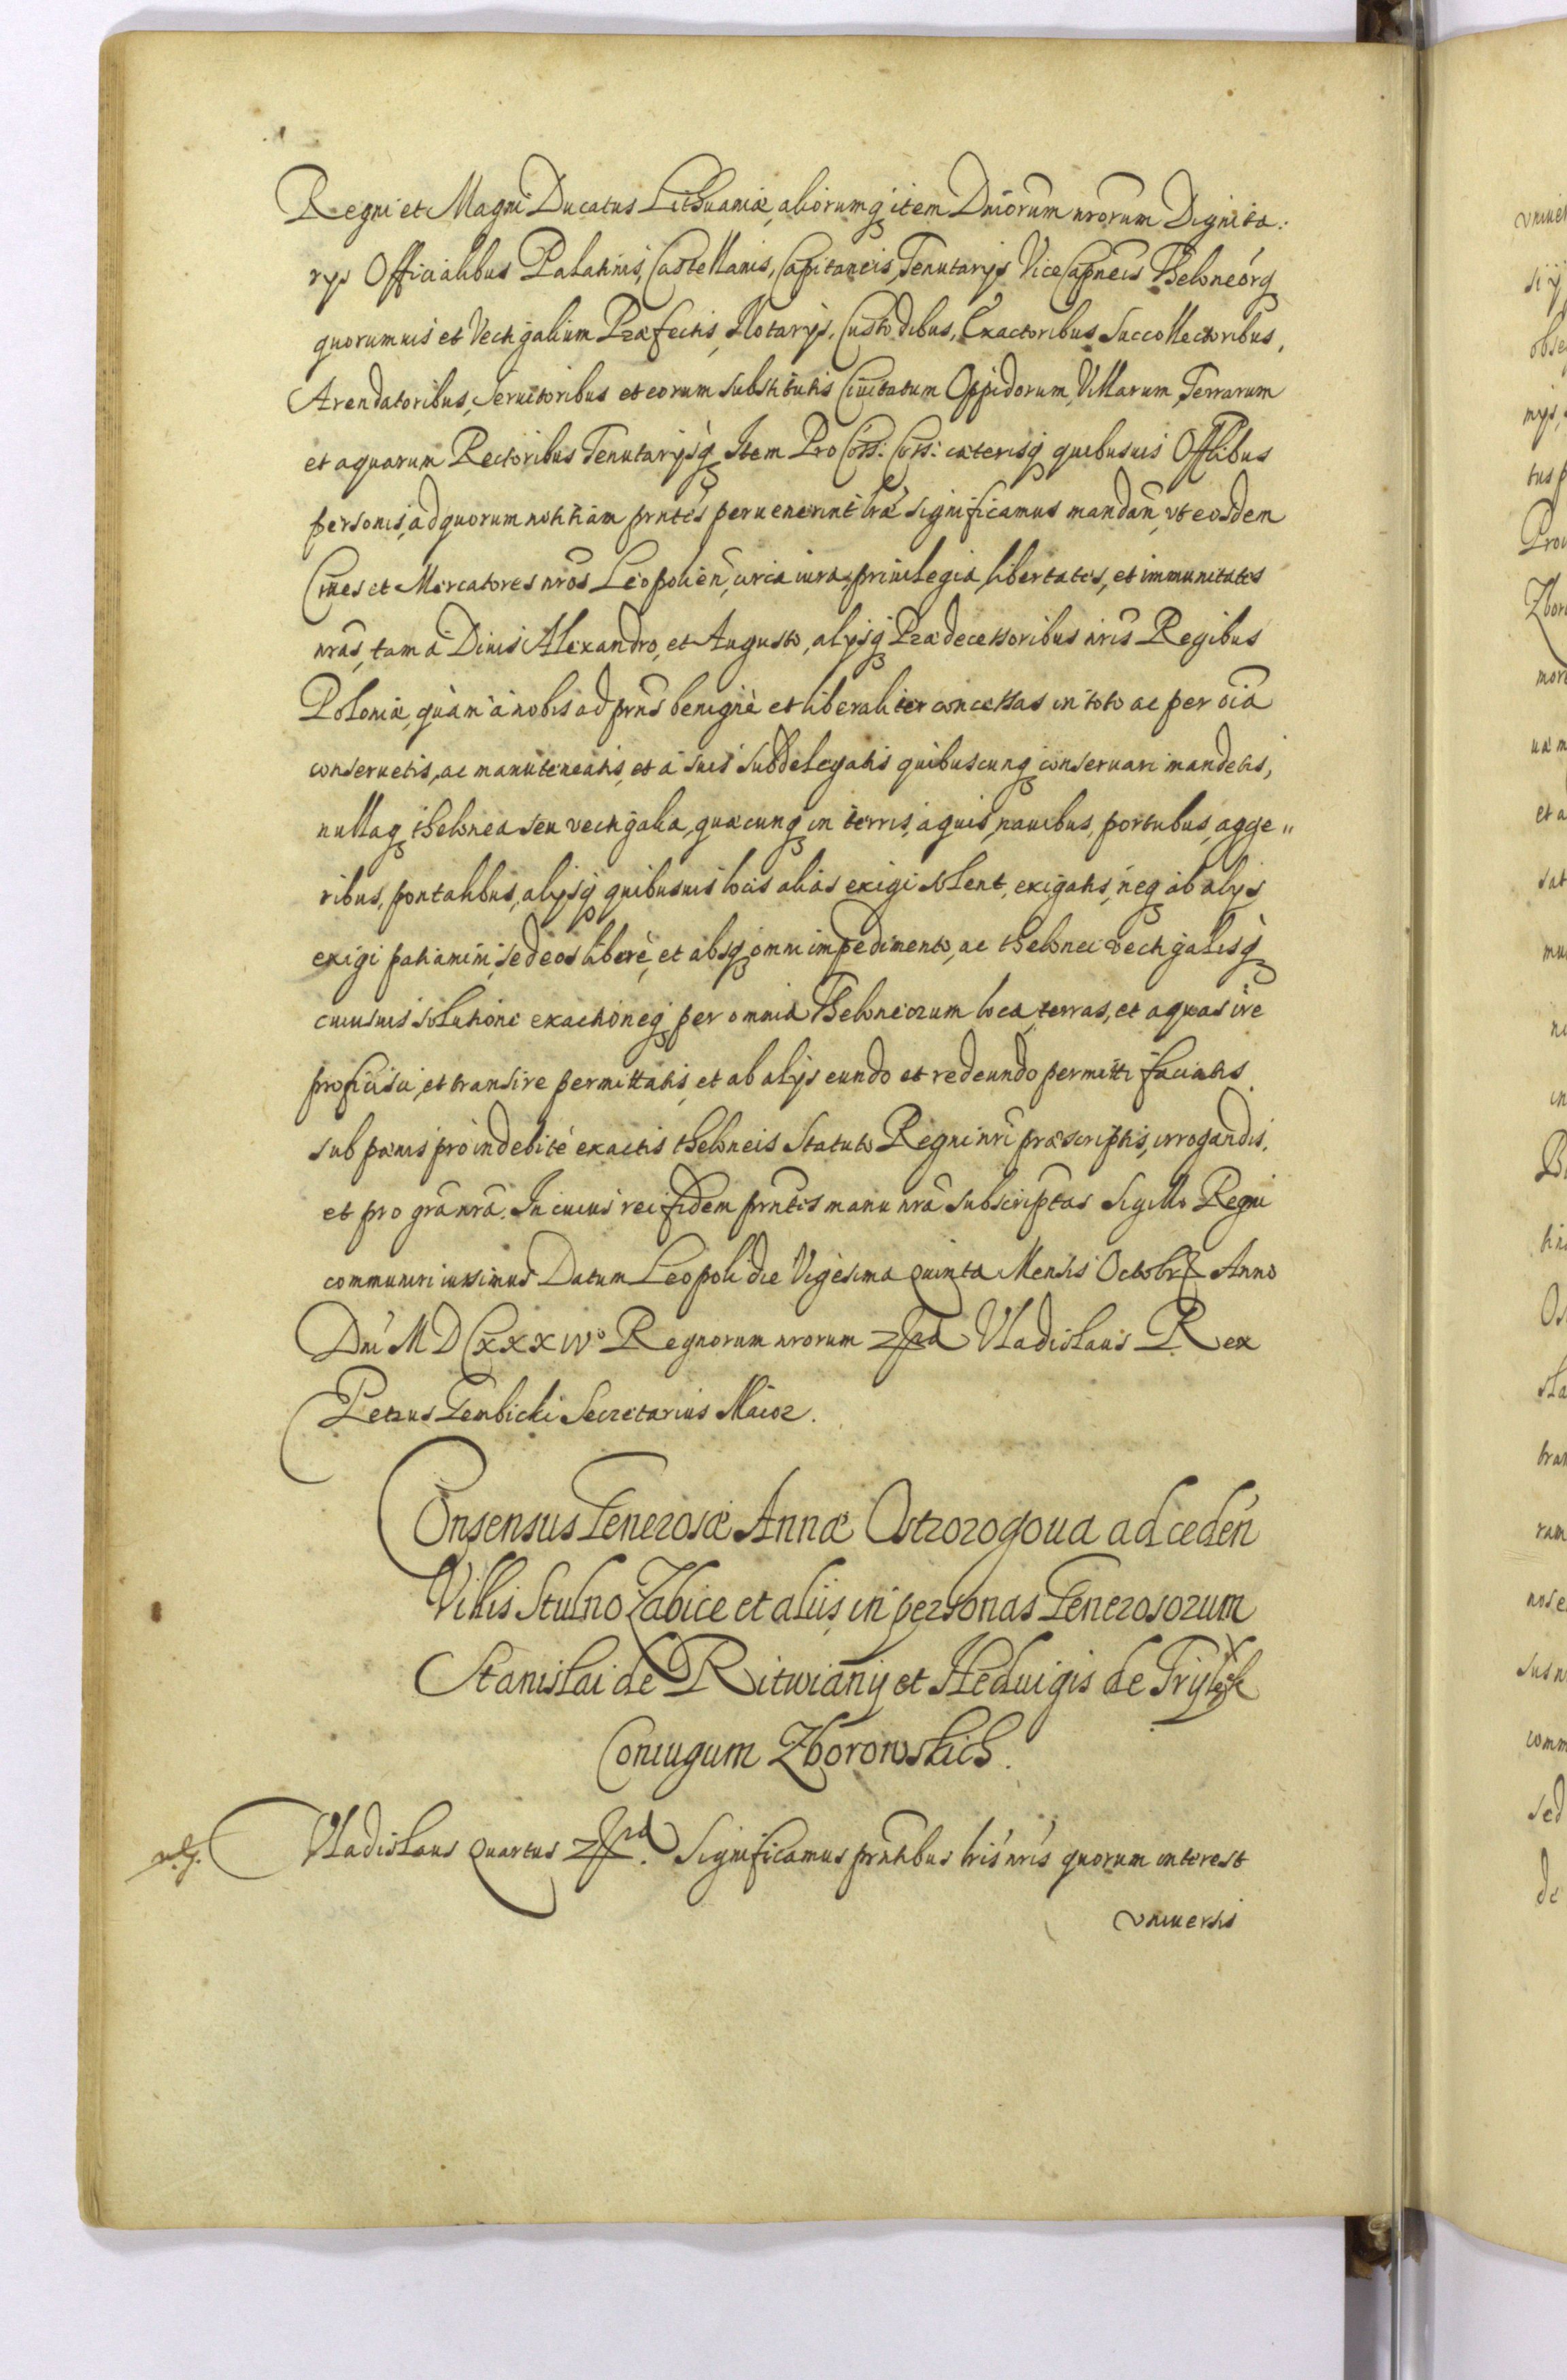 Regni et Magni Ducatus Lithuaniæ, aliorumq item Dniorum nrorum Dignita:
rys Officialibus Palatinis, Castellanis, Capitaneis, Tenutarys, Vice Capneis Theloneorq
quorumuis et Vectigalium Præfectis, Notarys, Custodibus, Exactoribus Succollectoribus,
Arendatoribus, Seruitoribus et eorum substitutis Ciuitatum Oppidorum, Villarum, Terrarum
et aquarum Rectoribus Tenutarysq Item Pro Coss: Coss: cæterisq quibusuis Offlibus
personis, ad quorum notitiam prntes peruenerint lræ significamus mandan, vt eosdem
Ciues et Mercatores nros Leopolien, circa iura, priuilegia, libertates, et immunitates
nras, tam à Diuis Alexandro, et Augusto, alysq Prædecessoribus nris Regibus
Poloniæ, quàm à nobis ad prns benignè et liberaliter concessas in toto ac per oia
conseruetis, ac manuteneatis, et à suis subdelegatis quibuscunq conseruari mandetis,
nullaq thelonea seu vectigalia, quæcunq in terris, aquis, nauibus, portubus, agge"
ribus, pontalibus, alysq quibusuis locis alias exigi solent, exigatis, neq ab alys
exigi patiamini, sed eos liberè, et absq omni impedimento, ac thelonei vectigalisq
cuiusuis solutione exactioneq per omnia Theloneorum loca, terras, et aquas ire
proficisci, et transire permittatis, et ab alys eundo et redeundo permitti faciatis
sub pœnis pro indebitè exactis theloneis Statuto Regni nri præscriptis, irrogandis,
et pro gra nra. In cuius rei fidem prntes manu nra subscriptas Sigillo Regni
communiri iussimus Datum Leopoli die Vigesima quinta Mensis Octobr Anno
Dni MDCXXXIVo Regnorum nrorum Vladislaus Rex
Petrus Gembicki Secretarius Maior.
Consensus Generosæ Annæ Ostrorogoua ad ceden
Villis Stulno Zabice et aliis in personas Generosorum
Stanislai de Ritwiany et Heduigis de
Coniugum Zborowskich.
Vladislaus quartus Significamus prntibus lris nris quorum interest
vniuersis